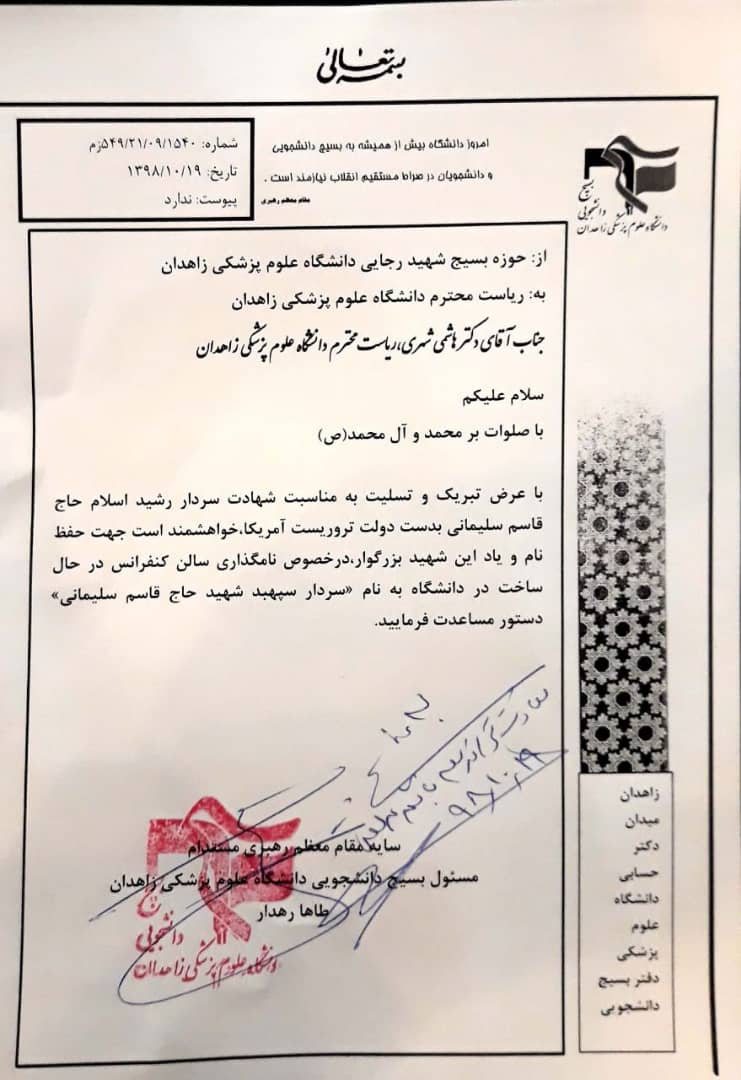 بسمه تعالی
امروز دانشگاه بیش از همیشه به بسیج دانشجویی
و دانشجویان در صراط مستقیم انقلاب نیازمند است .
مقام معظم رهبری
شماره: ۵۴۹/۲۱/۰۹/۱۵۴۰زم
تاریخ: ۱۳۹۸/۱۰/۱۹
پیوست: ندارد
بسیج
دانشجویی
دانشگاه علوم پزشکی زاهدان
از: حوزه بسیج شهید رجایی دانشگاه علوم پزشکی زاهدان
به: ریاست محترم دانشگاه علوم پزشکی زاهدان
جناب آقای دکتر هاشمی شهری،ریاست محترم دانشگاه علوم پزشکی زاهدان
سلام علیکم
با صلوات بر محمد و آل محمد(ص)
با عرض تبریک و تسلیت به مناسبت شهادت سردار رشید اسلام حاج
قاسم سلیمانی بدست دولت تروریست آمریکا،خواهشمند است جهت حفظ
نام و یاد این شهید بزرگوار،درخصوص نامگذاری سالن کنفرانس در حال
ساخت در دانشگاه به نام «سردار سپهبد شهید حاج قاسم سلیمانی»
دستور مساعدت فرمایید.
۹۸/۱۰/۱۹
سایه مقام معظم رهبری مستدام
مسئول بسیج دانشجویی دانشگاه علوم پزشکی زاهدان
طاها رهدار
دانشجویی
دانشگاه علوم پزشکی زاهدان
زاهدان
میدان
دکتر
حسابی
دانشگاه
علوم
پزشکی
دفتر بسیج
دانشجویی